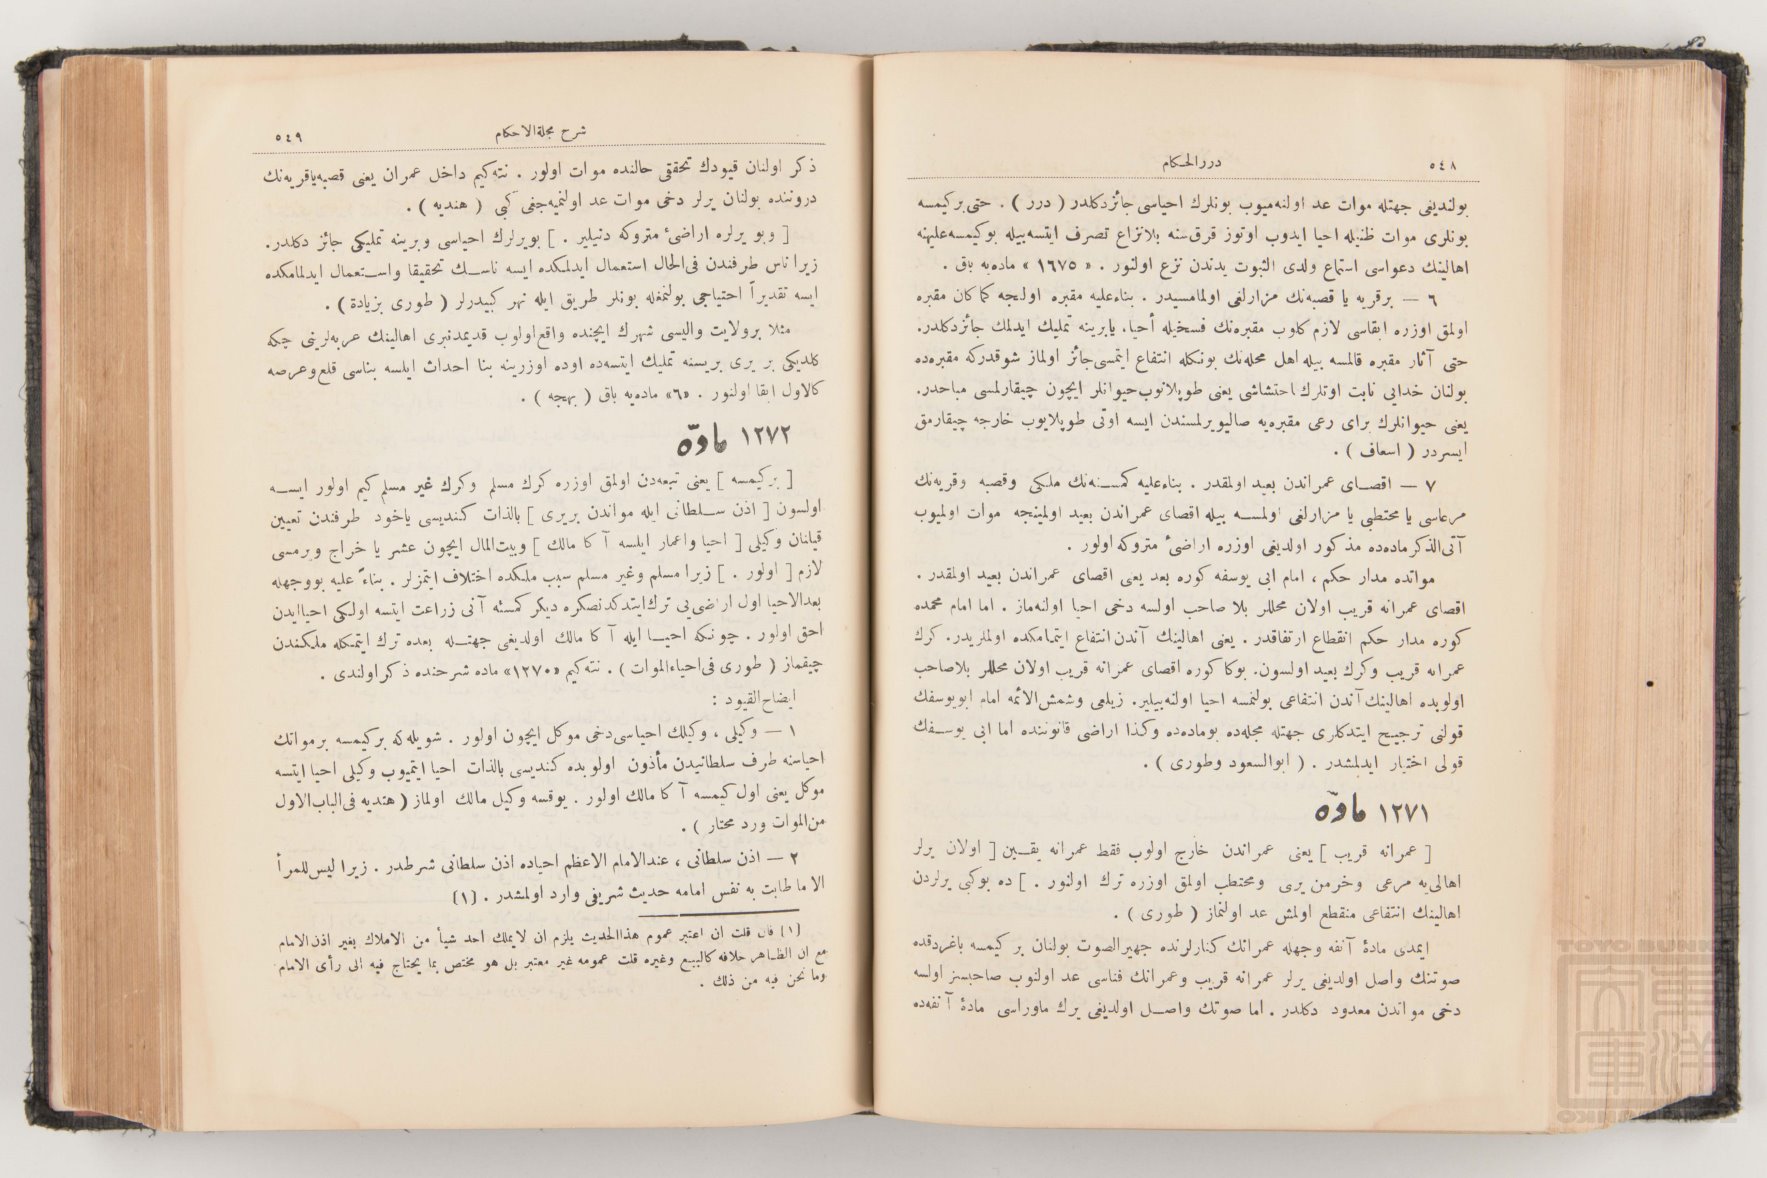 ٥٤٨
دررالحكام
بولنديغى جهتله موات عد اولنه‌ميوب بونلرك احياسى جائزدكلدر ( درر ) . حتى بركيمسه
بونلرى موات ظنيله احيا ايدوب اوتوز قرق سنه بلانزاع تصرف ايتسه‌بيله بوكيمسه‌عليهنه
اهالينك دعواسى استماع ولدى الثبوت يدندن نزع اولنور . « ١٦٧٥ » ماده‌يه باق .
٦ — برقريه يا قصبه‌نك مزارلغى اولمامسيدر . بناءعليه مقبره اولنجه كما كان مقبره
اولمق اوزره ابقاسى لازم كلوب مقبره‌نك فسخيله أحيا، يابرينه تمليك ايدلمك جائزدكلدر.
حتى آثار مقبره قالمسه بيله اهل محله‌نك بونكله انتفاع ايتمسى جائز اولماز شوقدركه مقبره‌ده
بولنان خدايى نابت اوتلرك احتشاشى يعنى طوپلانوب حيوانلر ايچون چيقارلمسى مباحدر.
يعنى حيوانلرك براى رعى مقبره‌يه صاليويرلمسندن ايسه اوتى طوپلايوب خارجه چيقارمق
ايسردر ( اسعاف ) .
٧ — اقصاى عمراندن بعيد اولمقدر . بناءعليه كمسنه‌نك ملكى وقصبه وقريه‌نك
مرعاسى يا محتطبى يا مزارلغى اولمسه بيله اقصاى عمراندن بعيد اولمينجه موات اولميوب
آتى‌الذكر ماده‌ده مذكور اولديغى اوزره اراضىٔ متروكه اولور .
مواتده مدار حكم ، امام ابى يوسفه كوره بعد يعنى اقصاى عمراندن بعيد اولمقدر .
اقصاى عمرانه قريب اولان محللر بلا صاحب اولسه دخى احيا اولنه‌ماز . اما امام محمده
كوره مدار حكم انقطاع ارتفاقدر . يعنى اهالينك آندن انتفاع ايتمامكده اولملريدر. كرك
عمرانه قريب وكرك بعيد اولسون. بوكا كوره اقصاى عمرانه قريب اولان محللر بلاصاحب
اولوبده اهالينك آندن انتفاعى بولنمسه احيا اولنه‌بيلير. زيلعى وشمس‌الائمه امام ابويوسفك
قولنى ترجيح ايتدكلرى جهتله مجله‌ده بوماده‌ده وكذا اراضى قانوننده اما ابى يوسفك
قولى اختيار ايدلمشدر . ( ابوالسعود وطورى ) .
١٢٧١ مادّه
[ عمرانه قريب ] يعنى عمراندن خارج اولوب فقط عمرانه يقين [ اولان يرلر
اهالى‌يه مرعى وخرمن يرى ومحتطب اولمق اوزره ترك اولنور . ] ده بوكبى يرلردن
اهالينك انتفاعى منقطع اولمش عد اولنماز ( طورى ) .
ايمدى مادهٔ آنفه وجهله عمرانك كنارلرنده جهيرالصوت بولنان بر كيمسه باغردقده
صوتنك واصل اولديغى يرلر عمرانه قريب وعمرانك فناسى عد اولنوب صاحبسز اولسه
دخى مواتدن معدود دكلدر . اما صوتك واصل اولديغى يرك ماوراسى مادهٔ آنفه‌ده
شرح مجلةالاحكام
٥٤٩
ذكر اولنان قيودك تحققى حالنده موات اولور . نته‌كيم داخل عمران يعنى قصبه‌ياقريه‌نك
دروننده بولنان يرلر دخى موات عد اولنميه‌جغى كبى ( هنديه ) .
[ وبو يرلره اراضىٔ متروكه دنيلير . ] بويرلرك احياسى وبرينه تمليكى جائز دكلدر.
زيرا ناس طرفندن فى‌الحال استعمال ايدلمكده ايسه ناسك تحقيقا واستعمال ايدلمامكده
ايسه تقديراً احتياجى بولنمغله بونلر طريق ايله نهر كبيدرلر ( طورى بزيادة ) .
مثلا برولايت واليسى شهرك ايچنده واقع‌اولوب قديمدنبرى اهالينك عربه‌لرينى چكه
كلديكى بر يرى بريسنه تمليك ايتسه‌ده اوده اوزرينه بنا احداث ايلسه بناسى قلع‌وعرصه
كالاول ابقا اولنور . «٦» ماده‌يه باق ( بهجه ) .
١٢٧٢ مادّه
[ بركيمسه ] يعنى تبعه‌دن اولمق اوزره كرك مسلم وكرك غير مسلم كيم اولور ايسه
اولسون [ اذن سلطانى ايله مواتدن بريرى ] بالذات كنديسى ياخود طرفندن تعيين
قيلنان وكيلى [ احيا واعمار ايلسه آكا مالك ] وبيت‌المال ايچون عشر يا خراج ويرمسى
لازم [ اولور . ] زيرا مسلم وغير مسلم سبب ملكده اختلاف ايتمزلر . بناءً عليه بووجهله
بعدالاحيا اول اراضى‌يى ترك‌ايتدكدنصكره ديكر كمسنه آنى زراعت ايتسه اولكى احياايدن
احق اولور . چونكه احيا ايله آكا مالك اولديغى جهتله بعده ترك ايتمكله ملكندن
چيقماز ( طورى فى‌احياءالموات ) . نته‌كيم «١٢٧٠» ماده شرحنده ذكر اولندى .
ايضاح‌القيود :
١ — وكيلى ، وكيلك احياسى‌دخى موكل ايچون اولور . شويله‌كه بركيمسه برمواتك
احياسنه طرف سلطانيدن مأذون اولوبده كنديسى بالذات احيا ايتميوب وكيلى احيا ايتسه
موكل يعنى اول كيمسه آكا مالك اولور . يوقسه وكيل مالك اولماز ( هنديه فى‌الباب‌الاول
من‌الموات ورد محتار ) .
٢ — اذن سلطانى ، عندالامام الاعظم احياده اذن سلطانى شرطدر . زيرا ليس‌للمرأ
الا ما طابت به نفس امامه حديث شريفى وارد اولمشدر . (١)
(١) فان قلت ان اعتبر عموم هذاالحديث يلزم ان لايملك احد شيأ من الاملاك بغير اذن‌الامام
مع ان الظاهر خلافه كالبيع وغيره قلت عمومه غير معتبر بل هو مختص بما يحتاج فيه الى رأى الامام
وما نحن فيه من ذلك .